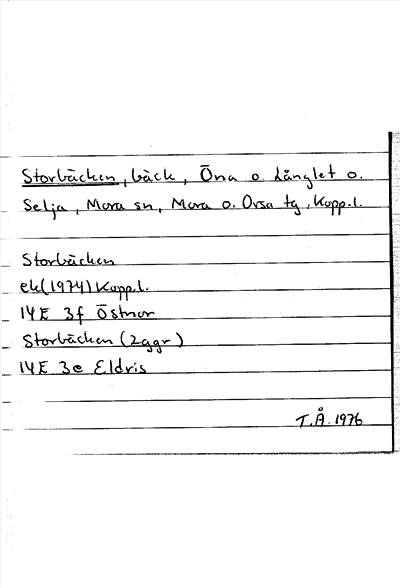 Storbäcken, bäck, Öna o. Långlet o.
Selja, Mora sn, Mora o. Orsa tg, Kopp.l.
Storbäcken
ek(1974)Kopp.l.
14E 3f Östnor
Storbäcken (2ggr)
14E 3e Eldris
T.Å. 1976